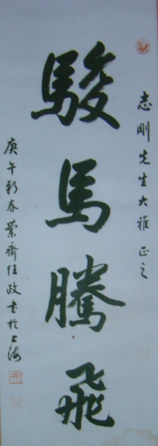 志剛先生大雅正之
駿馬騰飛
庚午新春蘭齋任政書於上海